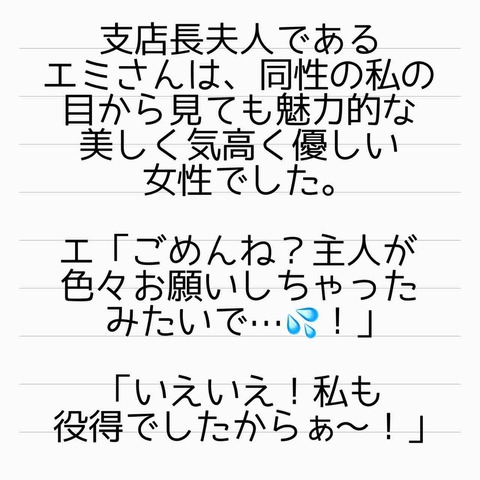 支店長夫人である
エミさんは、同性の私の
目から見ても魅力的な
美しく気高く優しい
女性でした。
エ「ごめんね？主人が
色々お願いしちゃった
みたいで…💦！」
「いえいえ！私も
役得でしたからぁ〜！」